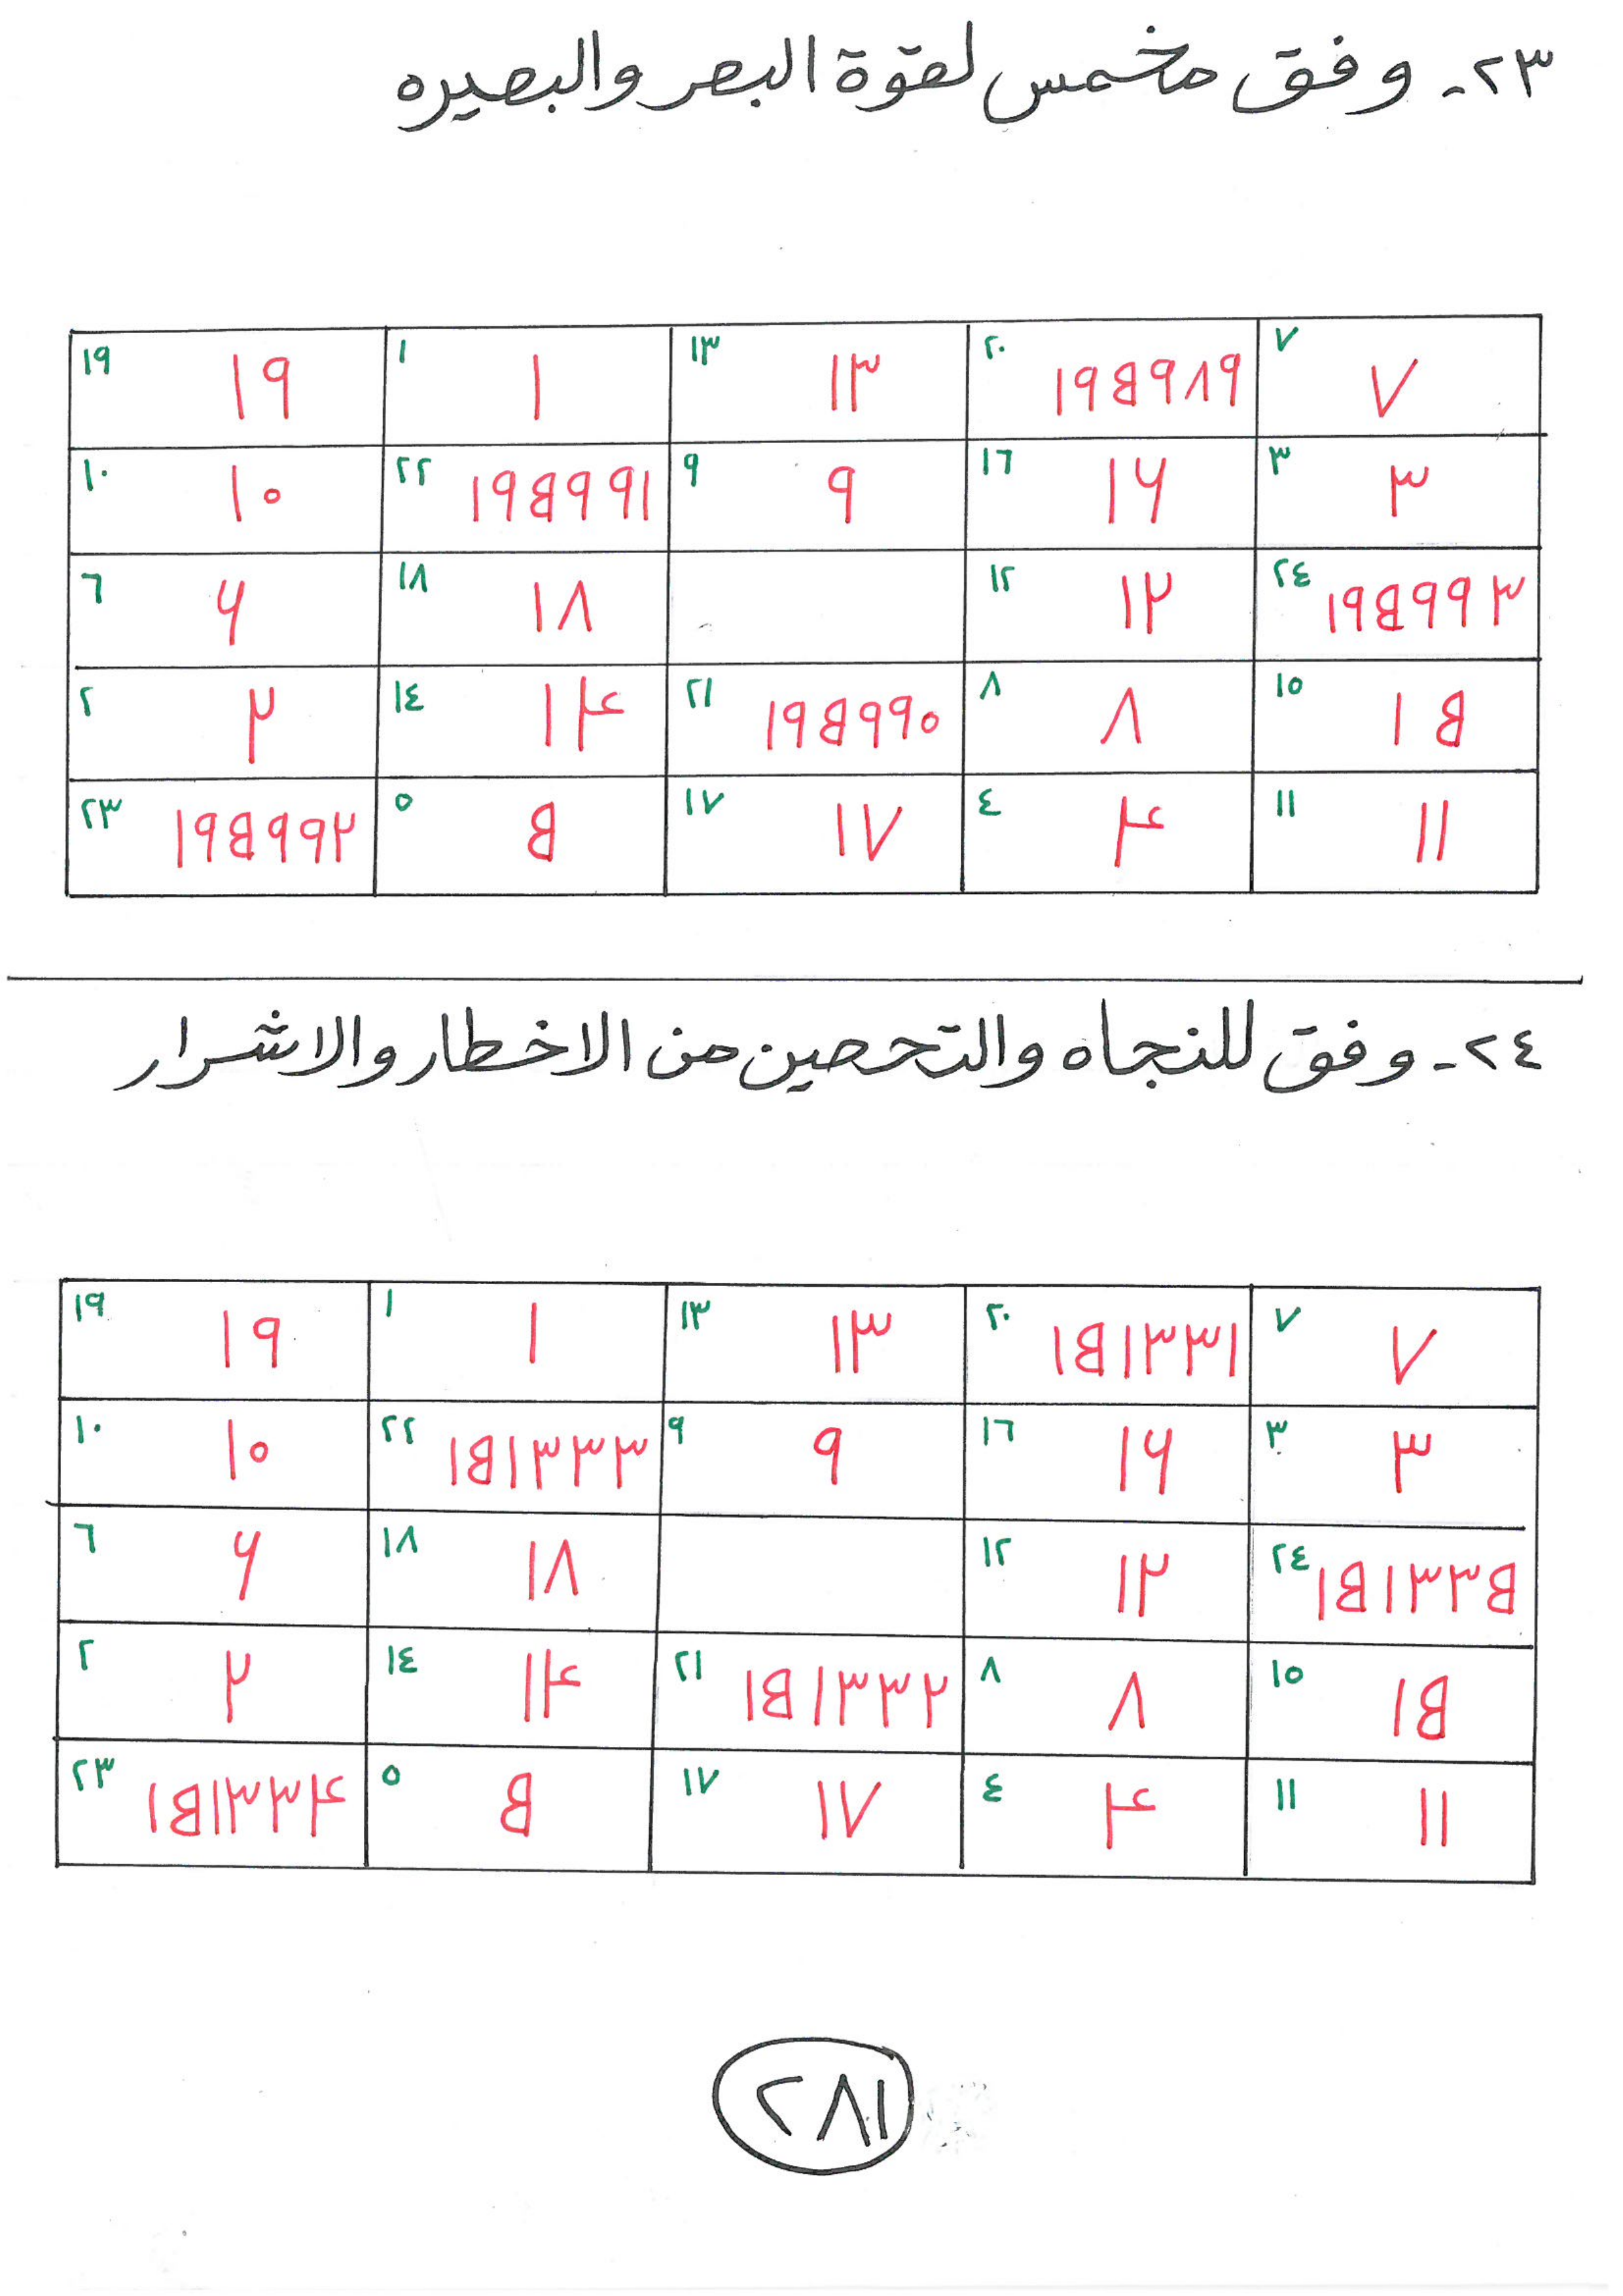 ٢٣- وفق مخمس لقوة البصر والبصيره
٧ ٧ ٢٠ ١٩٥٩٨٩ ١٣ ١٣ ١ ١ ١٩ ١٩
٣ ٣ ١٦ ١٦ ٩ ٩ ٢٢ ١٩٥٩٩١ ١٠ ١٠
٢٤ ١٩٥٩٩٣ ١٢ ١٢ ١٨ ١٨ ٦ ٦
١٥ ١٥ ٨ ٨ ٢١ ١٩٥٩٩٠ ١٤ ١٤ ٢ ٢
١١ ١١ ٤ ٤ ١٧ ١٧ ٥ ٥ ٢٣ ١٩٥٩٩٢
٢٤- وفق للنجاه والتحصين من الاخطار والاشرار
٧ ٧ ٢٠ ١٥١٣٣١ ١٣ ١٣ ١ ١ ١٩ ١٩
٣ ٣ ١٦ ١٦ ٩ ٩ ٢٢ ١٥١٣٣٣ ١٠ ١٠
٢٤ ١٥١٣٣٥ ١٢ ١٢ ١٨ ١٨ ٦ ٦
١٥ ١٥ ٨ ٨ ٢١ ١٥١٣٣٢ ١٤ ١٤ ٢ ٢
١١ ١١ ٤ ٤ ١٧ ١٧ ٥ ٥ ٢٣ ١٥١٣٣٤
٢٨١